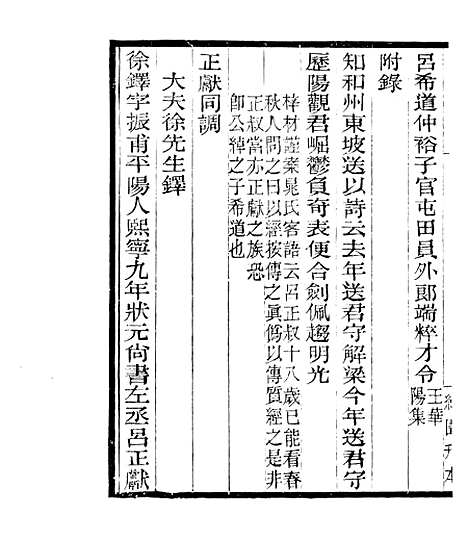 呂希道仲裕子官屯田員外郎端粹才令王華陽集
附錄
知和州東坡送以詩云去年送君守解梁今年送君守
歷陽觀君崛鬱負奇表便合劍佩趨明光
梓材謹案晁氏客語云呂正叔十八歲已能看春
秋人問之曰以經按傳之眞僞以傳質經之是非
正叔當亦正獻之族恐
卽公綽之子希道也
正獻同調
大夫徐先生鐸
徐鐸字振甫平陽人熙寧九年狀元尙書左丞呂正獻